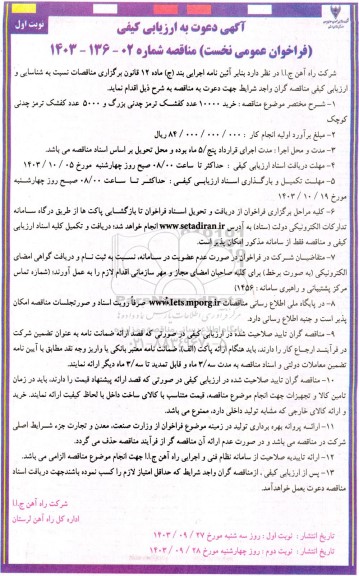 نوبت اول
آگهی دعوت به ارزیابی کیفی
(فراخوان عمومی نخست) مناقصه شماره ۰۲ - ۱۳۶ - ۱۴۰۳
شرکت راه آهن ج.ا.ا در نظر دارد بنابر آئین نامه اجرایی بند (ج) ماده ۱۲ قانون برگزاری مناقصات نسبت به شناسایی و
ارزیابی کیفی مناقصه گران واجد شرایط جهت دعوت به مناقصه به شرح ذیل اقدام نماید.
۱- شرح مختصر موضوع مناقصه : خرید ۱۰۰۰۰ عدد کفشک ترمز چدنی بزرگ و ۵۰۰۰ عدد کفشک ترمز چدنی
کوچک
۲- مبلغ برآورد اولیه انجام کار : ۸۴/۰۰۰/۰۰۰/۰۰۰ ریال
۳- مدت و محل اجرا : مدت اجرای قرارداد پنج/۵ ماه بوده و محل تحویل بر اساس اسناد مناقصه می باشد.
۴- مهلت دریافت اسناد ارزیابی کیفی : حداکثر تا ساعت ۰۸/۰۰ صبح روز چهارشنبه مورخ ۰۵ / ۱۰ / ۱۴۰۳
۵- مهلت تکمیل و بارگذاری اسناد ارزیابی کیفی : حداکثر تا ساعت ۰۸/۰۰ صبح روز چهارشنبه
مورخ ۱۹ / ۱۰ / ۱۴۰۳
۶- کلیه مراحل برگزاری فراخوان از دریافت و تحویل اسناد فراخوان تا بازگشایی پاکت ها از طریق درگاه سامانه
تدارکات الکترونیکی دولت (ستاد) به آدرس www.setadiran.ir انجام خواهد شد؛ دریافت و تکمیل کلیه اسناد ارزیابی
کیفی و مناقصه فقط از سامانه مذکور امکان پذیر است.
۷- متقاضیان شرکت در فراخوان در صورت عدم عضویت در سامانه، نسبت به ثبت نام و دریافت گواهی امضای
الکترونیکی (به صورت برخط) برای کلیه صاحبان امضای مجاز و مهر سازمانی اقدام لازم را به عمل آورند؛ (شماره تماس
مرکز پشتیبانی و راهبری سامانه : ۱۴۵۶)
۸- در پایگاه ملی اطلاع رسانی مناقصات www.iets.mporg.ir صرفاً رویت اسناد و صورتجلسات مناقصه امکان
پذیر است و جنبه اطلاع رسانی دارد.
۹- مناقصه گران تایید صلاحیت شده در ارزیابی کیفی در صورتی که قصد ارائه ضمانت نامه به عنوان تضمین شرکت
در فرآیند ارجاع کار را دارند، باید هنگام ارائه پاکت (الف)، ضمانت نامه معتبر بانکی یا واریز وجه نقد مطابق با آیین نامه
تضمین معاملات دولتی و اسناد مناقصه به مدت سه/۳ ماه و قابل تمدید تا سه/۳ ماه دیگر ارائه نمایند.
۱۰- مناقصه گران تایید صلاحیت شده در ارزیابی کیفی در صورتی که قصد ارائه پیشنهاد قیمت را دارند، باید در زمان
تامین کالا و تجهیزات جهت انجام موضوع مناقصه، قیمت متناسب با کالای ساخت داخل با لحاظ کیفیت ارائه نمایند. خرید
و ارائه کالای خارجی که مشابه تولید داخلی دارد، ممنوع می باشد.
۱۱- ارائه پروانه بهره برداری تولید در زمینه موضوع فراخوان از وزارت صنعت، معدن و تجارت جزء شرایط اصلی
شرکت در مناقصه می باشد و در صورت عدم ارائه آن مناقصه گر از فرآیند مناقصه حذف می گردد.
۱۲- ارائه تاییدیه صلاحیت از سامانه نظام فنی و اجرایی راه آهن ج.ا.ا جهت انجام موضوع مناقصه الزامی می باشد.
۱۳- پس از ارزیابی کیفی ، ازمناقصه گران واجد شرایط که حداقل امتیاز لازم را کسب نموده باشندجهت دریافت اسناد
مناقصه دعوت بعمل خواهدآمد.
شرکت راه آهن ج.ا.ا
اداره کل راه آهن لرستان
تاریخ انتشار : نوبت اول : روز سه شنبه مورخ ۲۷ / ۰۹ / ۱۴۰۳
تاریخ انتشار : نوبت دوم : روز چهارشنبه مورخ ۲۸ / ۰۹ / ۱۴۰۳